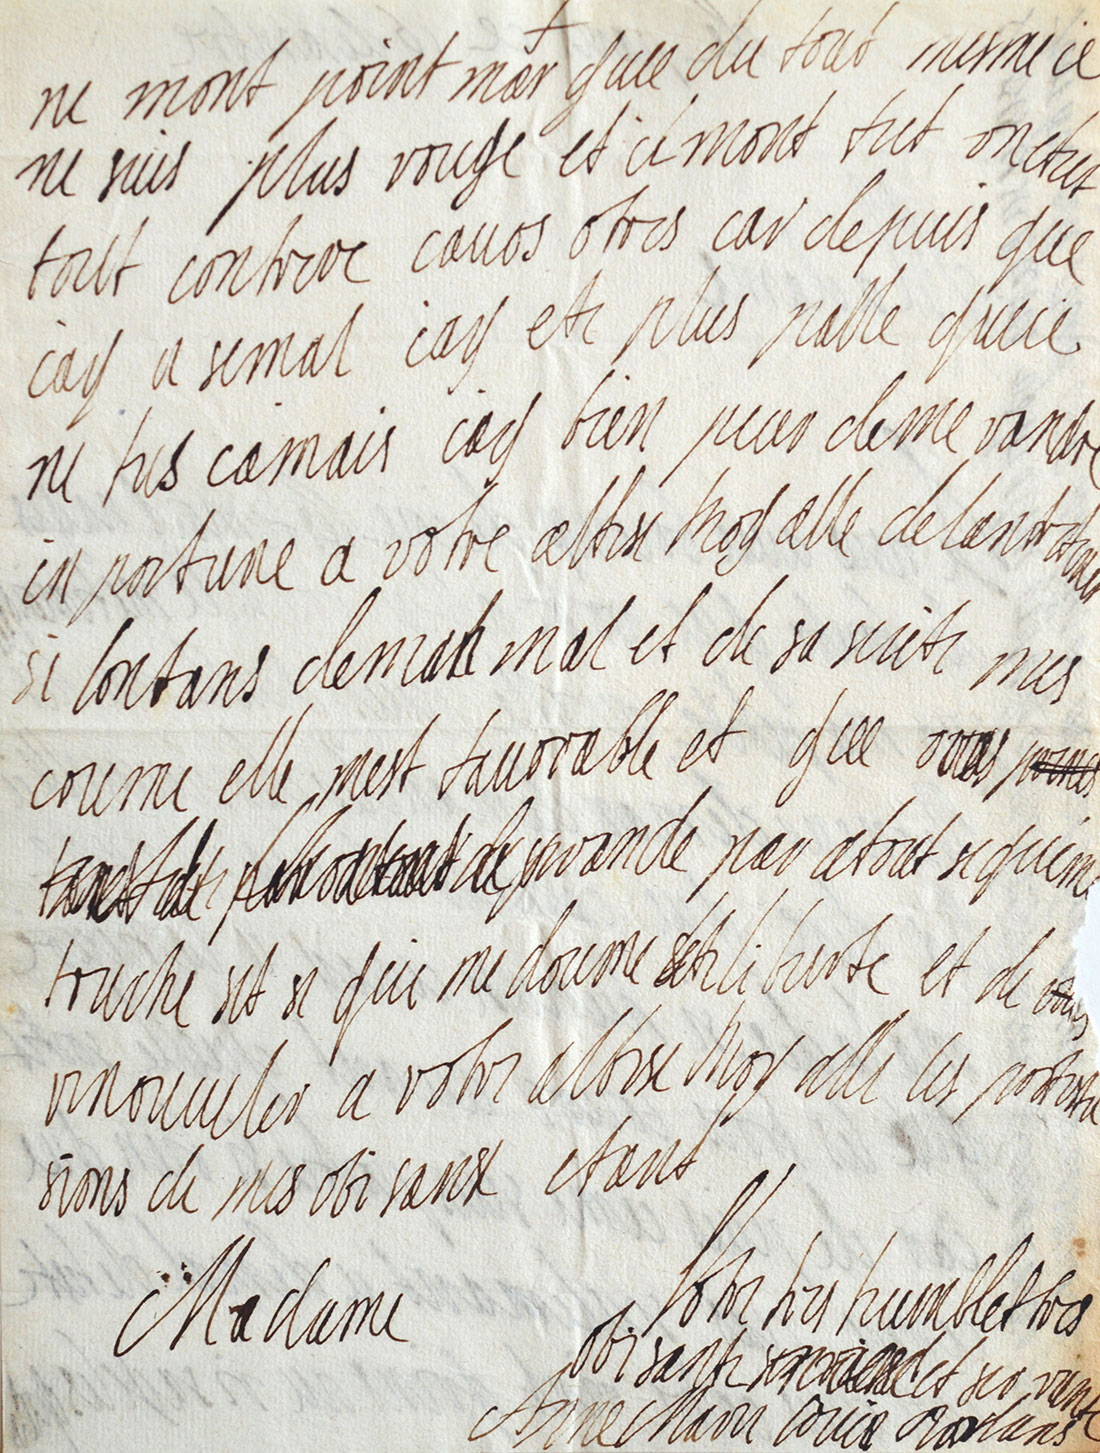 ne mont point mar quee du tout mesme ie
ne suis plus rouge et il mont fut on efet
tout contrere cauos otres car depuis que
iay u semal iay ete plus palle que ie
ne fus iamais iay bien peur deme randre
in portune a votre altesse Roy alle delantretenir
si lontans demon mal et de sa suite mes
coume elle mest fauorable et que vous
prande par a tout se qui me
touche set se qui me doune sete liberte et de
renouueler a votre altesse Roy alle les protesta
sions de mes obi sanse etant
Madame
Votre tres humble et tres
obi sante et ser vante
Anne Marie Louise Dorleans